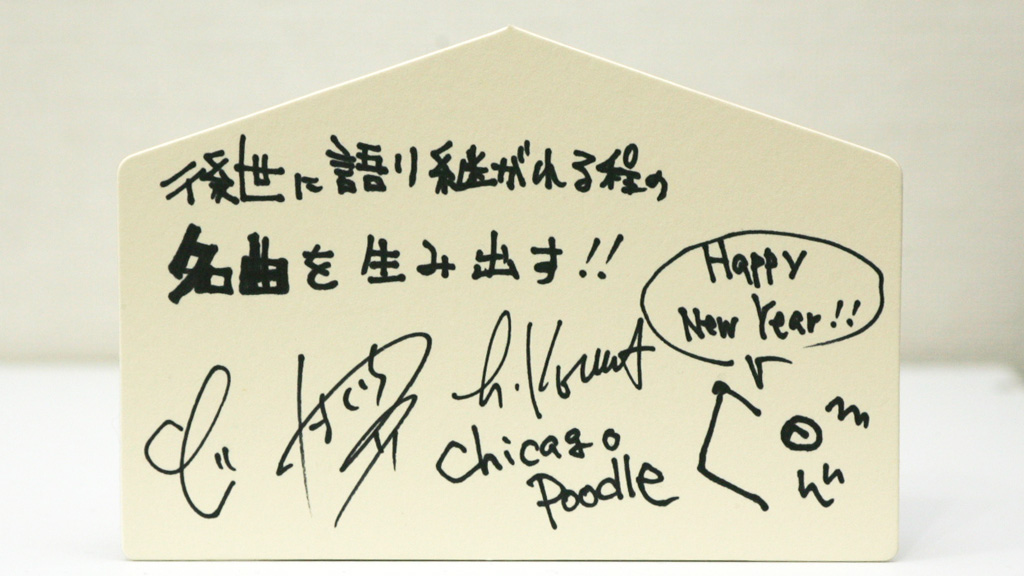 後世に語り継がれる程の
名曲を生み出す!!
Happy
New Year!!
Chicago
Poodle